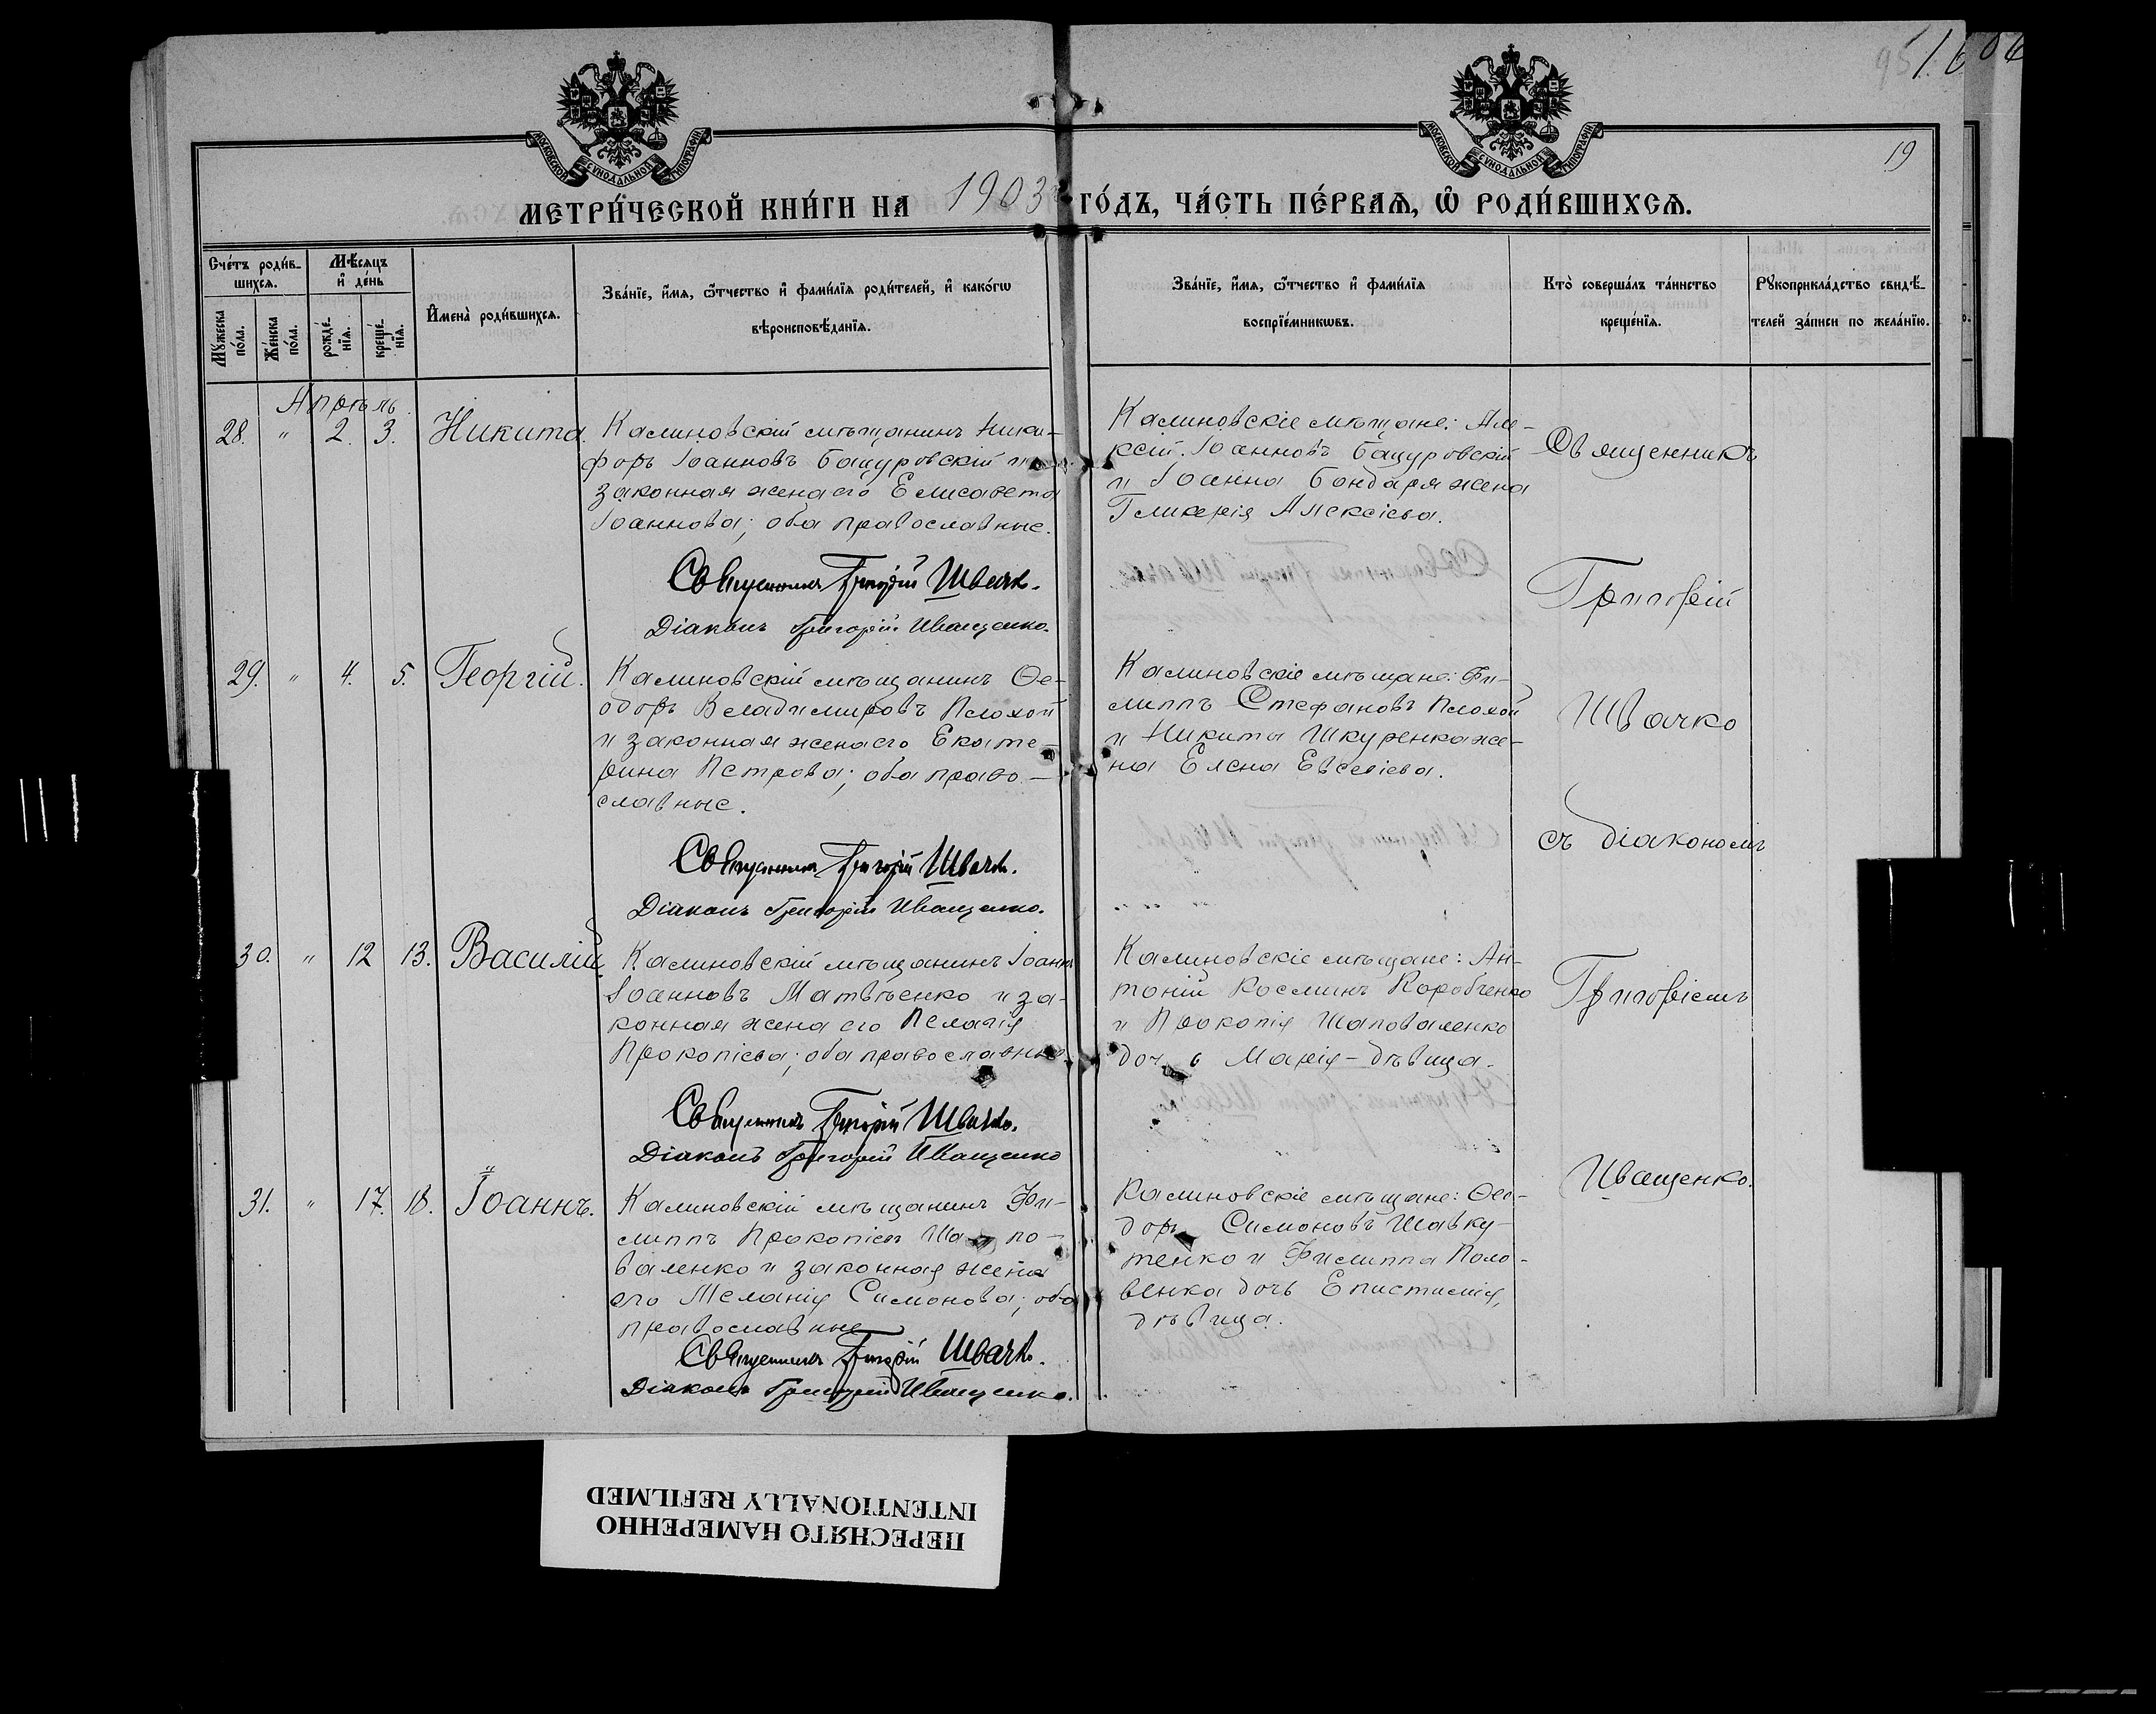 951. 606
МОСКОВСКОЙ СУНОДАЛЬНОЙ ТИПОГРАФIИ
МОСКОВСКОЙ СУНОДАЛЬНОЙ ТИПОГРАФIИ
19
МЕТРИ́ЧЕСКОЙ КНИ́ГИ НА 1903 ГО́ДЪ, ЧА́СТЬ ПЕ́РВАѦ, Ѡ҆ РОДИ́ВШИХСѦ.
Сче́тъ роди́в-
шихсѧ.
Мѣ́сѧцъ
и҆ де́нь
Мꙋ́жеска
по́ла.
Же́нска
по́ла.
рожде́-
нїѧ.
креще́-
нїѧ.
И҆мена̀ роди́вшихсѧ.
Зва́нїе, и҆́мѧ, ѻ҆́тчество и҆ фамі́лїѧ роди́телей, и҆ како́гѡ
вѣроисповѣ́данїѧ.
Зва́нїе, и҆́мѧ, ѻ҆́тчество и҆ фамі́лїѧ
воспрїе́мникѡвъ.
Кто̀ соверша́лъ та́инство
креще́нїѧ.
Рꙋкоприкла́дство свидѣ́-
телей за́писи по жела́нїю.
Апрѣль
28. " 2. 3. Никита.
Калиновскiй мѣщанинъ Ники-
форъ Iоанновъ Бацуровскiй и
законная жена его Елисавета
Iоаннова; оба православные.
Священникъ Григорiй Швачко.
Дiаконъ Григорiй Иващенко.
Калиновскiе мѣщане: Але-
ксiй Iоанновъ Бацуровскiй
и Iоанна Бондаря жена
Гликерiя Алексiева.
Священникъ
Григорiй
Швачко
съ дiакономъ
Григорiемъ
Иващенко.
29. " 4. 5. Георгiй.
Калиновскiй мѣщанинъ Ѳе-
одоръ Владимировъ Плохой
и законная жена его Екате-
рина Петрова; оба право-
славные.
Священникъ Григорiй Швачко.
Дiаконъ Григорiй Иващенко.
Калиновскiе мѣщане: Фи-
липпъ Стефановъ Плохой
и Никита Шкуренка же-
на Елена Евсевiева.
30. " 12 13. Василiй.
Калиновскiй мѣщанинъ Iоаннъ
Iоанновъ Матвѣенко и за-
конная жена его Пелагiя
Прокопiева; оба православные.
Священникъ Григорiй Швачко.
Дiаконъ Григорiй Иващенко
Калиновскiе мѣщане: Ан-
тонiй Косминъ Коробченко
и Прокопiя Шаповаленко
дочь Марiя - дѣвица.
31. " 17. 18. Iоаннъ.
Калиновскiй мѣщанинъ Фи-
липпъ Прокопiевъ Шапо-
валенко и законная жена
его Меланiя Симонова; оба
православные
Священникъ Григорiй Швачко.
Дiаконъ Григорiй Иващенко.
Калиновскiе мѣщане: Ѳео-
доръ Симоновъ Шавку-
тенко и Филиппа Поло-
венка дочь Епистимiя,
дѣвица.
ПЕРЕСНЯТО НАМЕРЕННО
INTENTIONALLY REFILMED